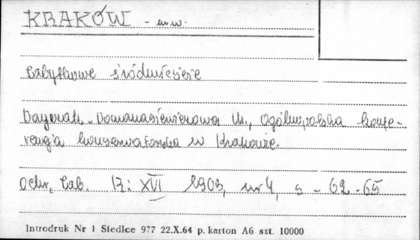 KRAKÓW - m.w.
Zabytkowe śródmieście
Dayczak-Domanasiewiczowa M., Ogólnopolska konfe-
rencja konserwatorska w Krakowie.
Ochr. Zab. R: XVI 1963, nr 4, s - 62-65
Introdruk Nr 1 Siedlce 977 22.X.64 p. karton A6 szt. 10000